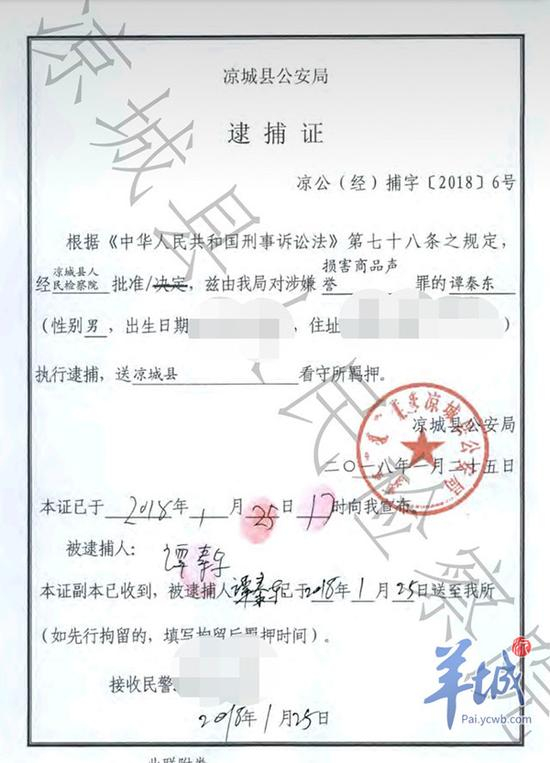 凉城县公安局
逮捕证
凉公（经）捕字〔2018〕6号
根据《中华人民共和国刑事诉讼法》第七十八条之规定，
经凉城县人民检察院批准/决定，兹由我局对涉嫌损害商品声誉罪的谭秦东
（性别男，出生日期，住址）
执行逮捕，送凉城县看守所羁押。
凉城县公安局
二〇一八年一月二十五日
本证已于2018年1月25日17时向我宣布。
被逮捕人：谭秦东
本证副本已收到，被逮捕人谭秦东已于2018年1月25日送至我所
（如先行拘留的，填写拘留后羁押时间）。
接收民警：
2018年1月25日
凉城县公安局
凉城县人民检察院
羊城派
Pai.ycwb.com